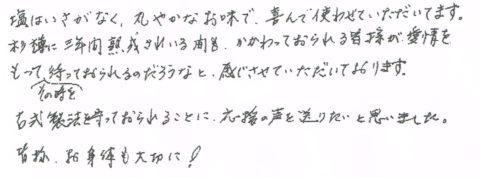 塩はいさがなく、丸やかなお味で、喜んで使わせていただいてます。
杉樽に三年間熟成されいる間も、かかわっておられる皆様が愛情を
もって、待っておられるのだろうなと、感じさせていただいております。
その時を
古式製法を守っておられることに、応援の声を送りたいと思いました。
皆様、お身体も大切に！